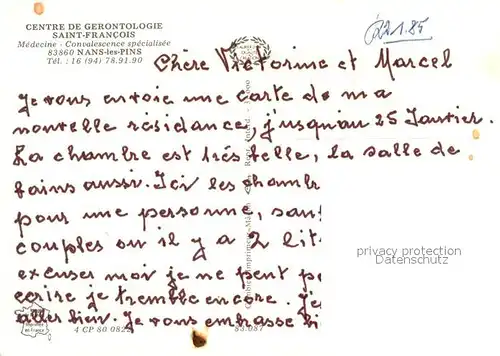 CENTRE DE GERONTOLOGIE
SAINT-FRANÇOIS
Médecine - Convalescence spécialisée
83860 NANS-les-PINS
Tél. : 16 (94) 78.91.90
22.1.85
Chère Victorine et Marcel
Je vous envoie une carte de ma
nouvelle résidance, j'usqu'au 25 Janvier.
La chambre est très belle, la salle de
bains aussi. Ici les chamb
pour une personne, sauf
couples ou il y a 2 lits
excuser moi je ne peut p
écrire je tremble encore. J'e
aller bien. Je vous embrasse bi
privacy protection
Datenschutz
4 CP 80 0822
83.087